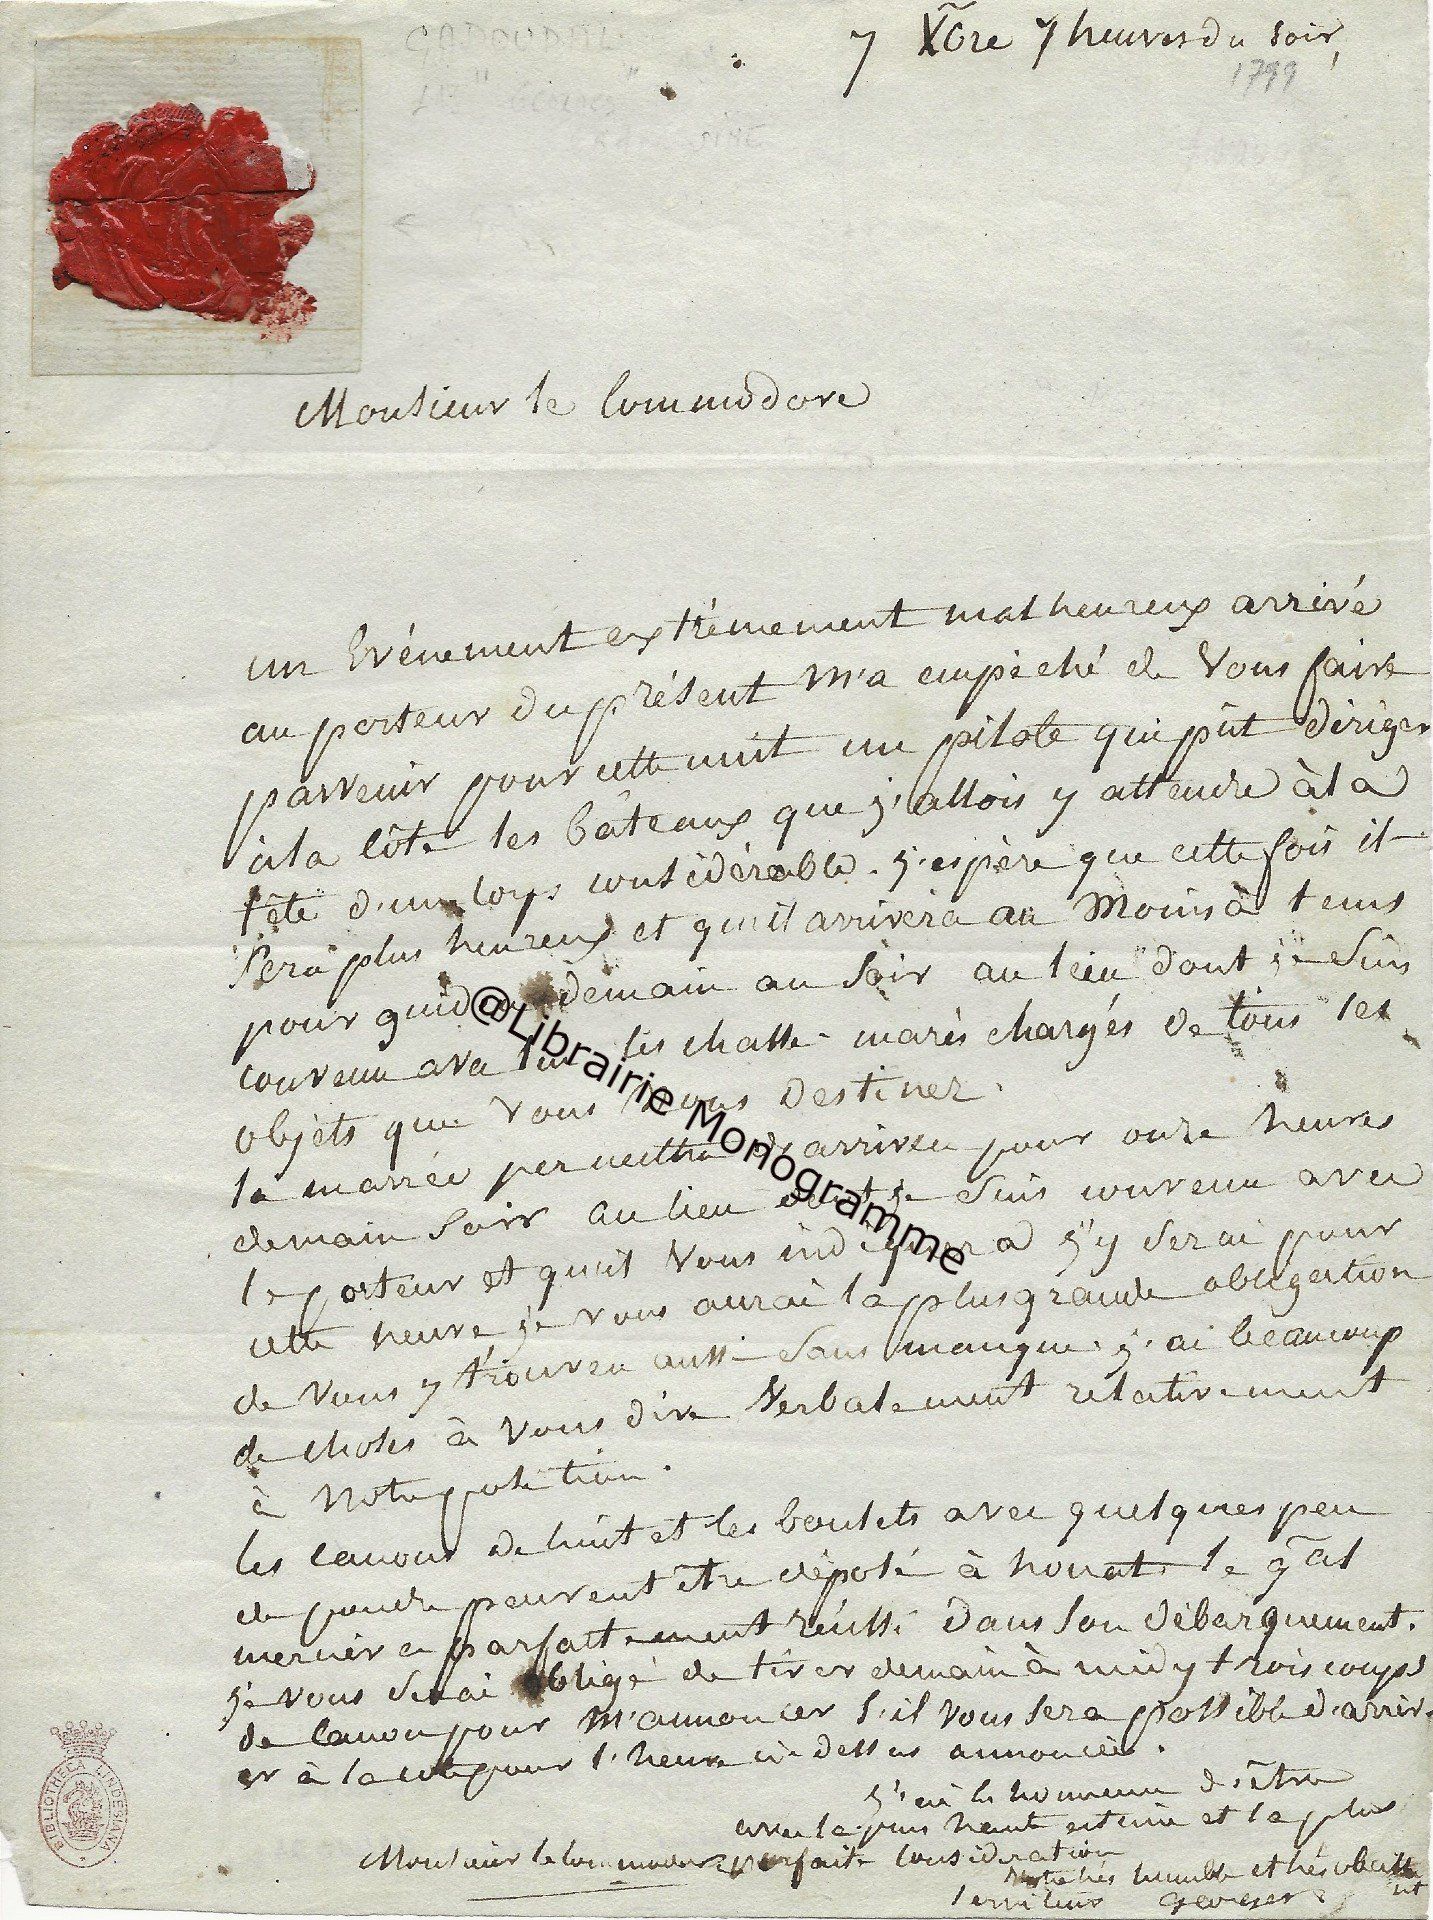 7 Xbre 7 heures du soir,
1799
CADOUDAL
Monsieur le Commodore
un Evénement extrémement malheureux arrivé
au porteur du présent m'a empêché de vous faire
parvenir pour cette nuit un pilote qui pût diriger
à la Côte les bâteaux que j'allois y attendre à la
tête d'un Corps considérable. j'espère que cette fois il
sera plus heureux et qu'il arrivera au moins à tems
pour guider demain au soir au lieu dont je suis
convenu avec lui les chasse-marés chargés de tous les
objets que vous nous destinez.
la marrée permettra d'arriver pour onze heures
demain soir au lieu dont je suis convenu avec
le porteur et qu'il vous indiquera j'y serai pour
cette heure je vous aurai la plus grande obligation
de vous y trouver aussi sans manque. j'ai beaucoup
de choses à vous dire verbalement relativement
à notre position.
les canons de huit et les boulets avec quelques peu
de poudre peuvent être déposé à houat. le gal
mercier a parfaitement réussi dans son débarquement.
je vous serai obligé de tirer demain à midy trois coups
de Canon pour m'annoncer s'il vous sera possible d'arriv-
er à la côte pour l'heure ci dessus annoncée.
j'ai l'honneur d'être
avec la plus haute estime et la plus
Monsieur le Commodore parfaite Considération
votre très humble et très obeiss
nt
serviteur Georges
@Librairie Monogramme
BIBLIOTHECA LINDESIANA